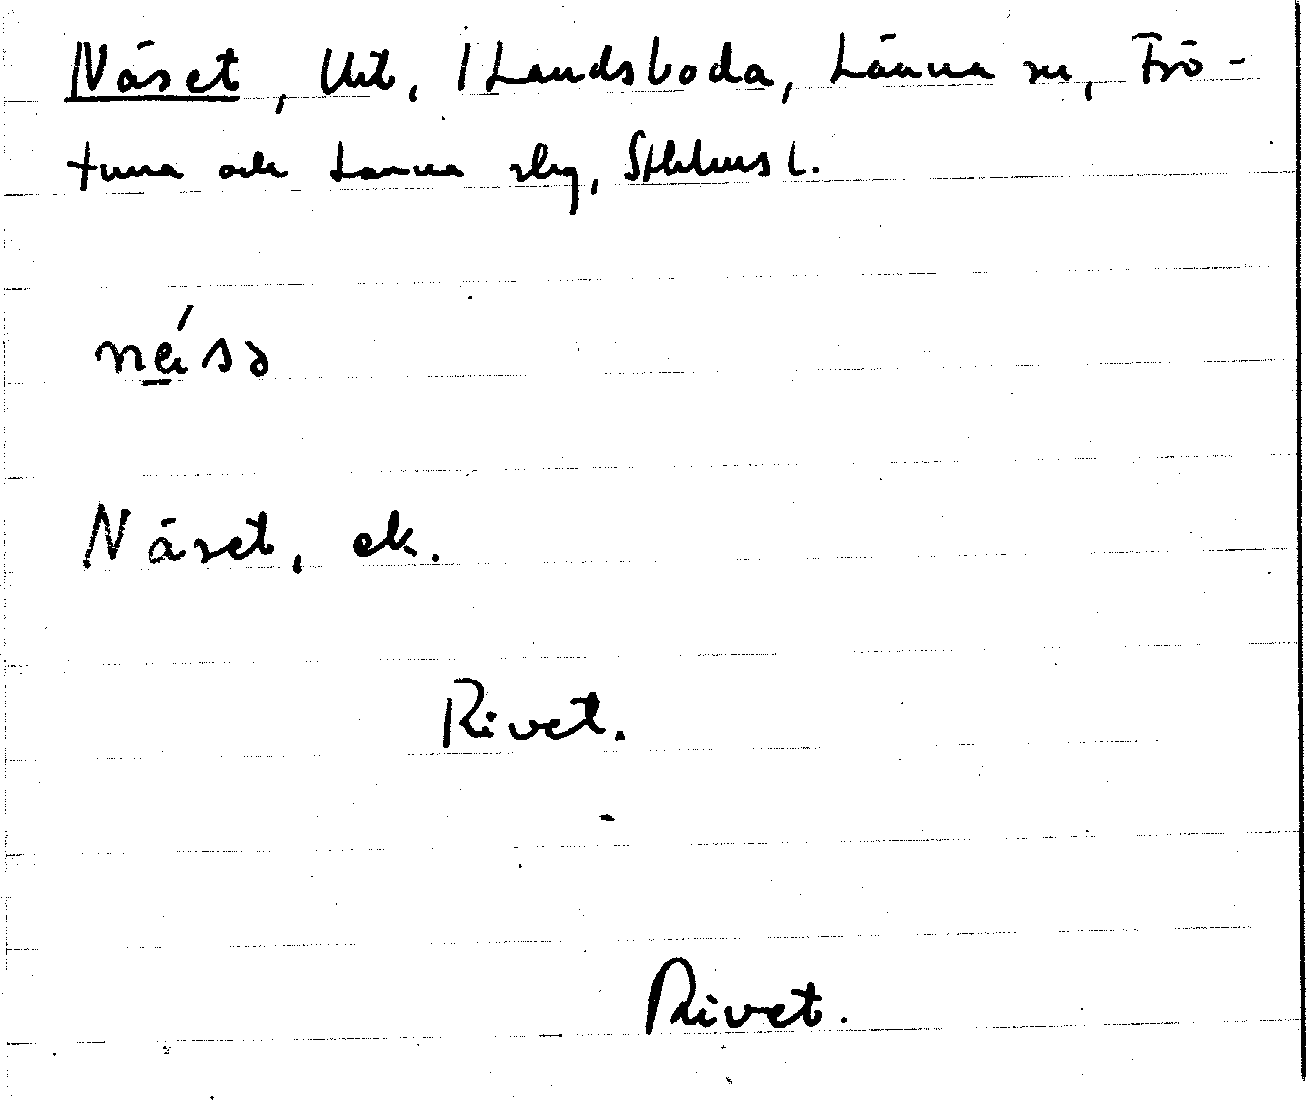 Näset, Utt, 1 Landsboda, Länna sn, Frö-
tuna och Länna slg, Sthlms l.
nǽ̲sə
Näset, ek.
Rivet.
Rivet.